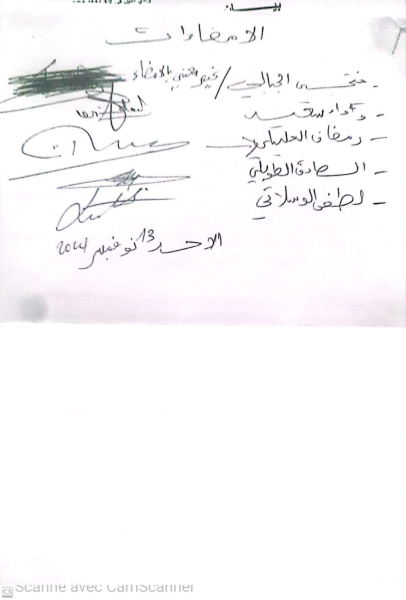 بيان
الامضاءات
- فتحي الجبالي / غير معني بالامضاء
- وداد سعيد
- رمضان العليمي
- الصادق الطويلي
- لطفي الوسلاتي
الاحد 13 نوفمبر 2024
CS Scanné avec CamScanner